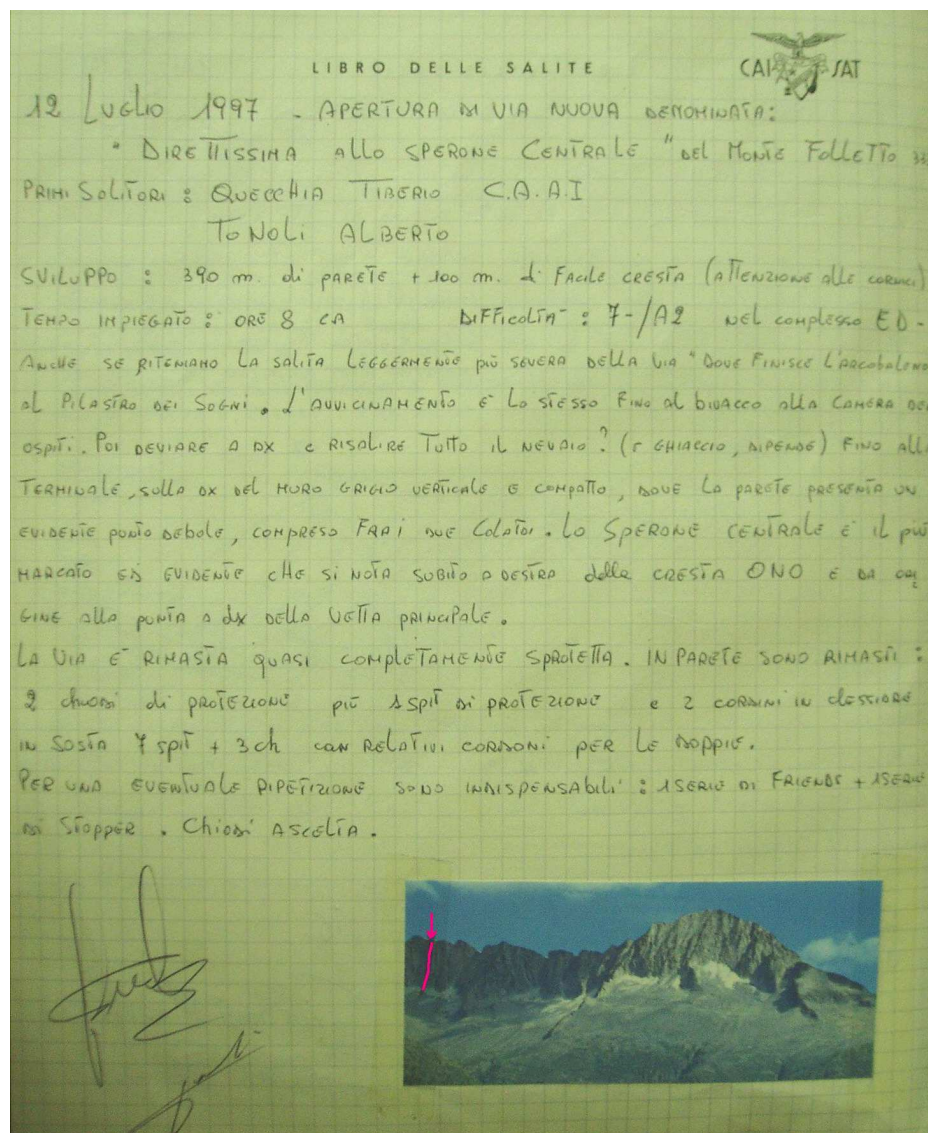 LIBRO DELLE SALITE
CAI SAT
12 LUGLIO 1997 - APERTURA DI VIA NUOVA DENOMINATA:
"DIRETTISSIMA ALLO SPERONE CENTRALE" DEL MONTE FOLLETTO
PRIMI SALITORI: QUECCHIA TIBERIO C.A.A.I
TONOLI ALBERTO
SVILUPPO: 390 m. di PARETE + 100 m. di FACILE CRESTA (ATTENZIONE ALLE CORNICI)
TEMPO IMPIEGATO: ORE 8 CA DIFFICOLTA': 7-/A2 NEL COMPLESSO ED-
ANCHE SE RITENIAMO LA SALITA LEGGERMENTE PIÙ SEVERA DELLA VIA "DOVE FINISCE L'ARCOBALENO
AL PILASTRO DEI SOGNI. L'AVVICINAMENTO E' LO STESSO FINO AL BIVACCO ALLA CAMERA DE
OSPITI. POI DEVIARE A DX e RISALIRE TUTTO IL NEVAIO? (r GHIACCIO, DIPENDE) FINO ALL
TERMINALE, SULLA DX DEL MURO GRIGIO VERTICALE E COMPATTO, DOVE LA PARETE PRESENTA UN
EVIDENTE PUNTO DEBOLE, COMPRESO FRA i DUE COLATOI. LO SPERONE CENTRALE E' IL PIÙ
MARCATO ED EVIDENTE CHE SI NOTA SUBITO A DESTRA della CRESTA ONO E DA ORI
GINE alla PUNTA a dx DELLA VETTA PRINCIPALE.
LA VIA E' RIMASTA QUASI COMPLETAMENTE SPROTETTA. IN PARETE SONO RIMASTI:
2 chiodi di PROTEZIONE PIÙ 1 SPIT DI PROTEZIONE e 2 CORDINI IN CLESSIDRE
IN SOSTA 7 SPIT + 3 ch CON RELATIVI CORDONI PER LE DOPPIE.
PER UNA EVENTUALE RIPETIZIONE SONO INDISPENSABILI: 1 SERIE DI FRIENDS + 1 SERIE
DI STOPPER. Chiodi A SCELTA.